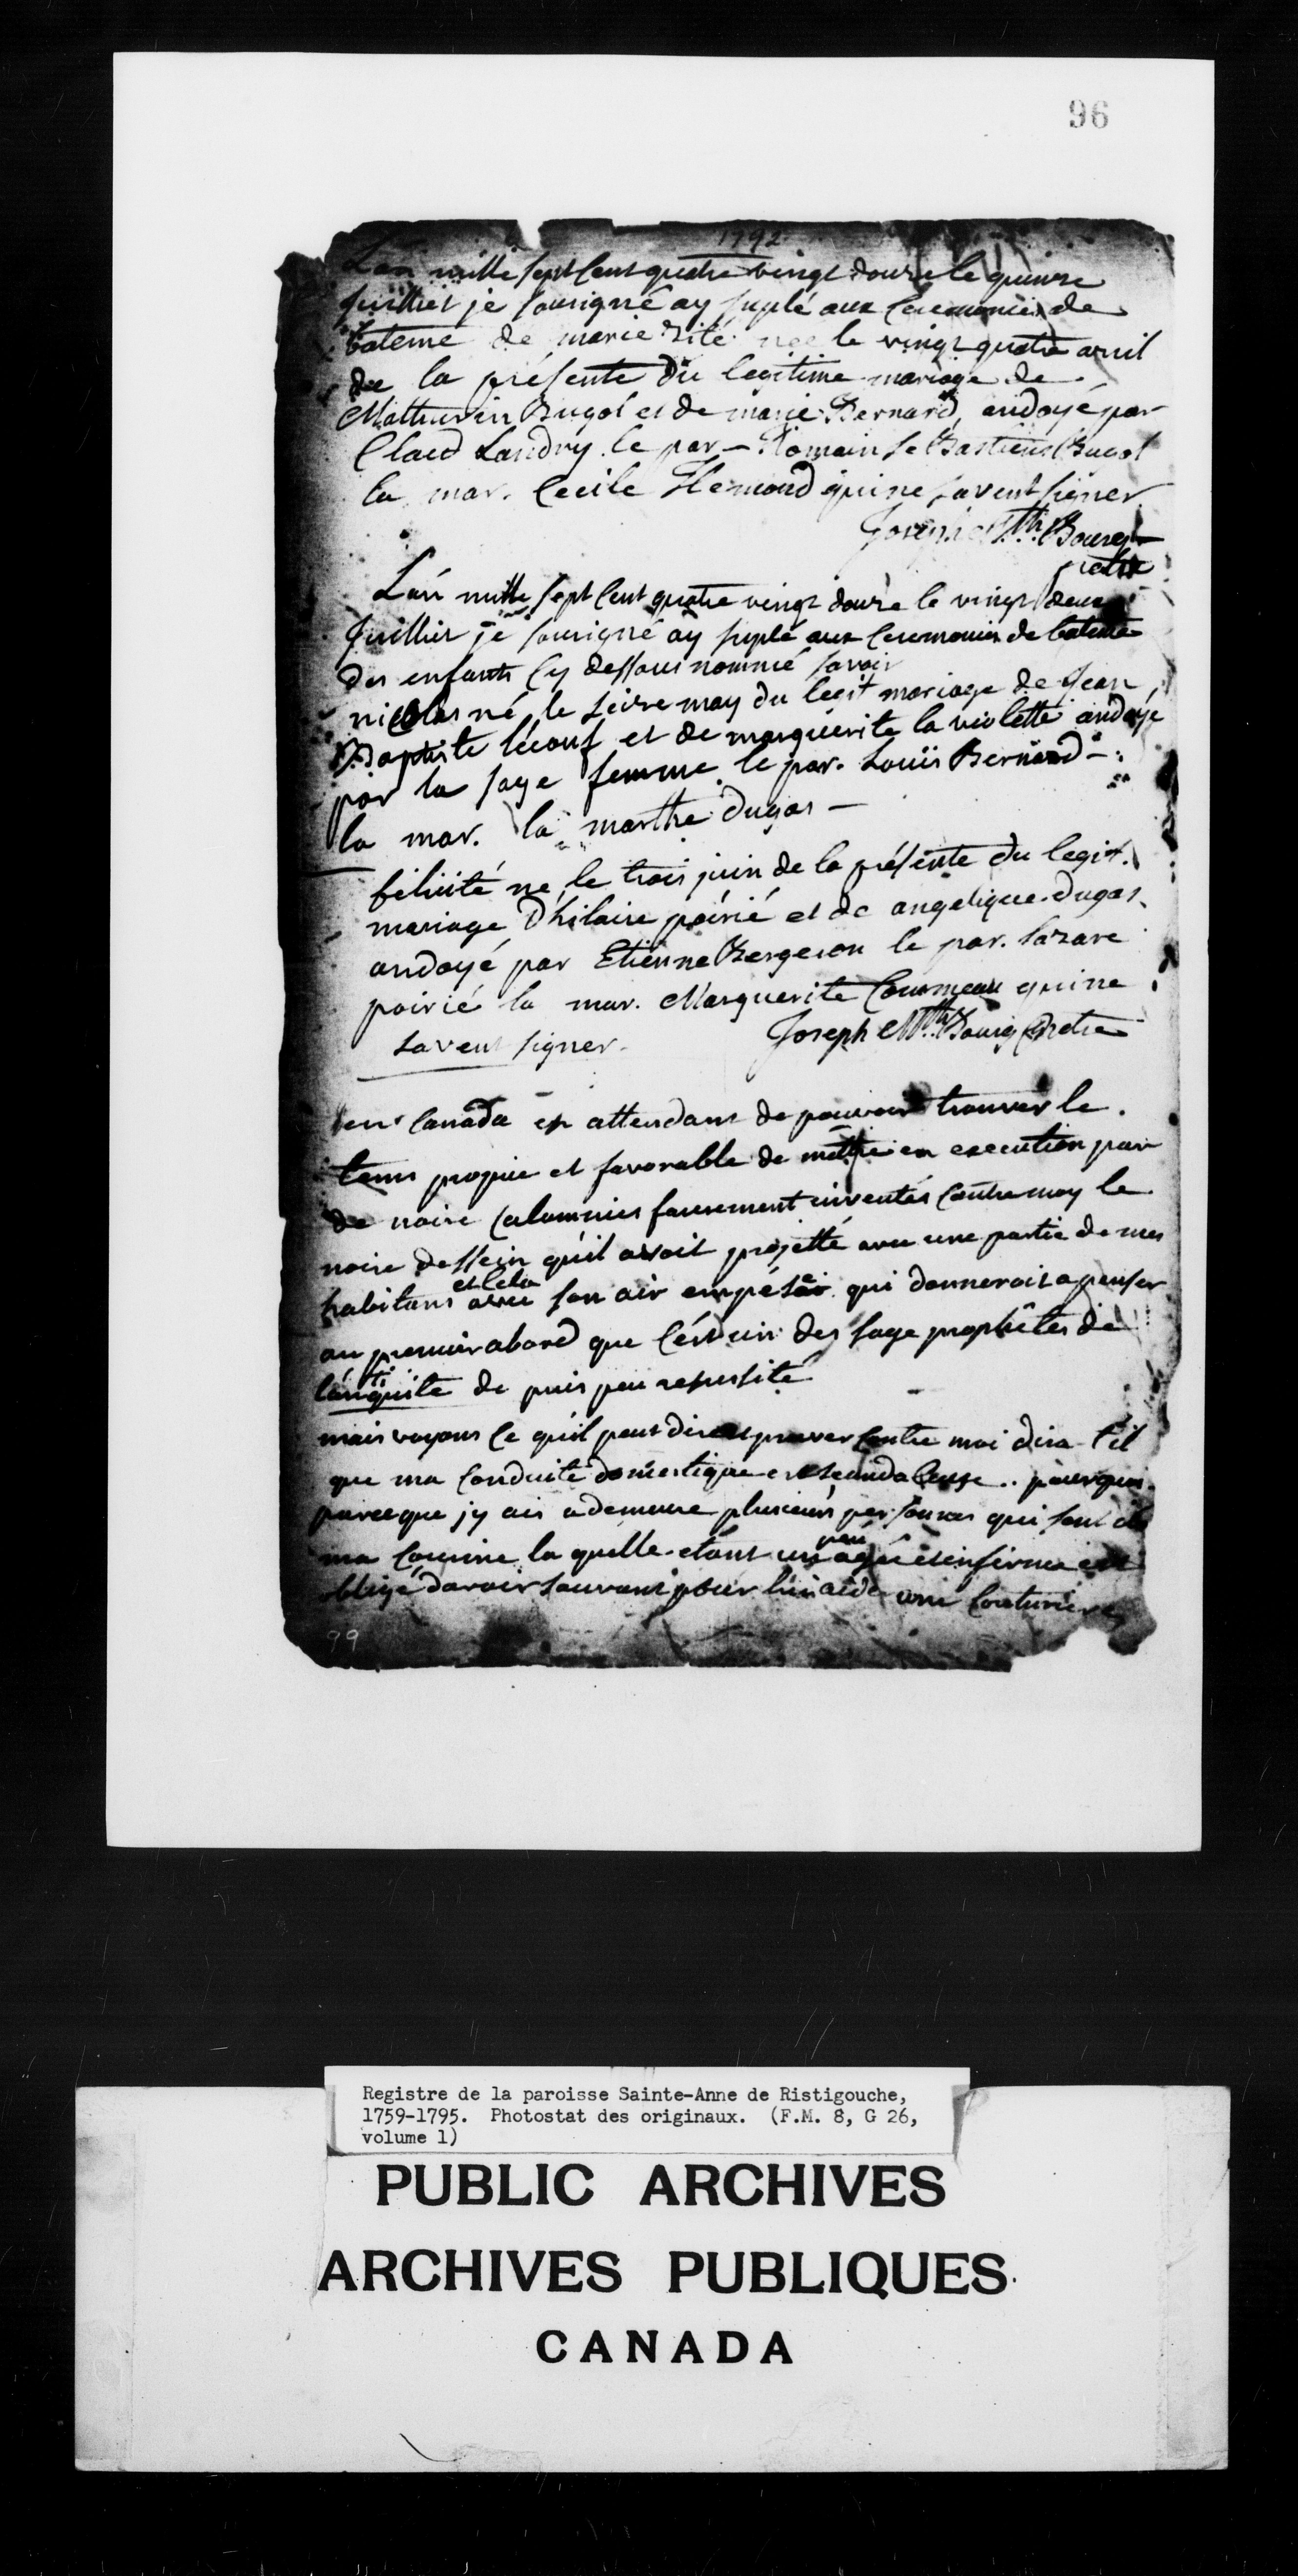 96
1792
L'an mille sept Cent quatre vingt douze le quinze
juilliet je sousigné ay suplé aux Ceremonies de
bateme de marie Zité née le vingt quatre avril
de la présente du legitime mariage de
Mathurin Bugot et de marie Bernard, andoyé par
Claud Landry. le par - Romain Se Bastien Bugot
la mar. Cecile Hemond qui ne savent signer
Joseph Mth. Bourg
prètre
L'an mille sept Cent quatre vingt douze le vingt deux
juilliet je sousigné ay suplé aux Ceremonies de bateme
des enfants Cy dessous nommé savoir
nicolas né le seize may du legit mariage de Jean
Baptiste lécouf et de marguerite la violette andoyé
par la sage femme. le par. Louïs Bernard -
la mar. la marthe dugas -
félicité né le trois juin de la présente du legit.
mariage d'hilaire poirié et de angelique dugas.
andoyé par Etienne Bergeron le par. Lazare
poirié la mar. Marguerite Commeau qui ne
savent signer. Joseph Mth. Bourg prètre
en Canada en attendant de pouvoir trouver le
tems propre et favorable de mettre en execution par
de noire Calomnies faussement inventés Contre moy le
noire dessein qu'il avoit projetté avec une partie de mes
et Cela
habitans avec son air empésé qui donneroit a penser
au premier abord que C'est un des sage prophêtes de
l'antiquité de puis peu resussité
mais voyons Ce qu'il peut dire et prouver Contre moi dira t'il
que ma Conduite domestique est scandaleuse .. pourquoi
parceque j'y ais a demeure plusieurs personnes qui sont de
peu
ma Cousine la quelle etant un agée et infirme est
obligé d'avoir souvant pour lui aider une Couturiere
99
Registre de la paroisse Sainte-Anne de Ristigouche,
1759-1795. Photostat des originaux. (F.M. 8, G 26,
volume 1)
PUBLIC ARCHIVES
ARCHIVES PUBLIQUES
CANADA